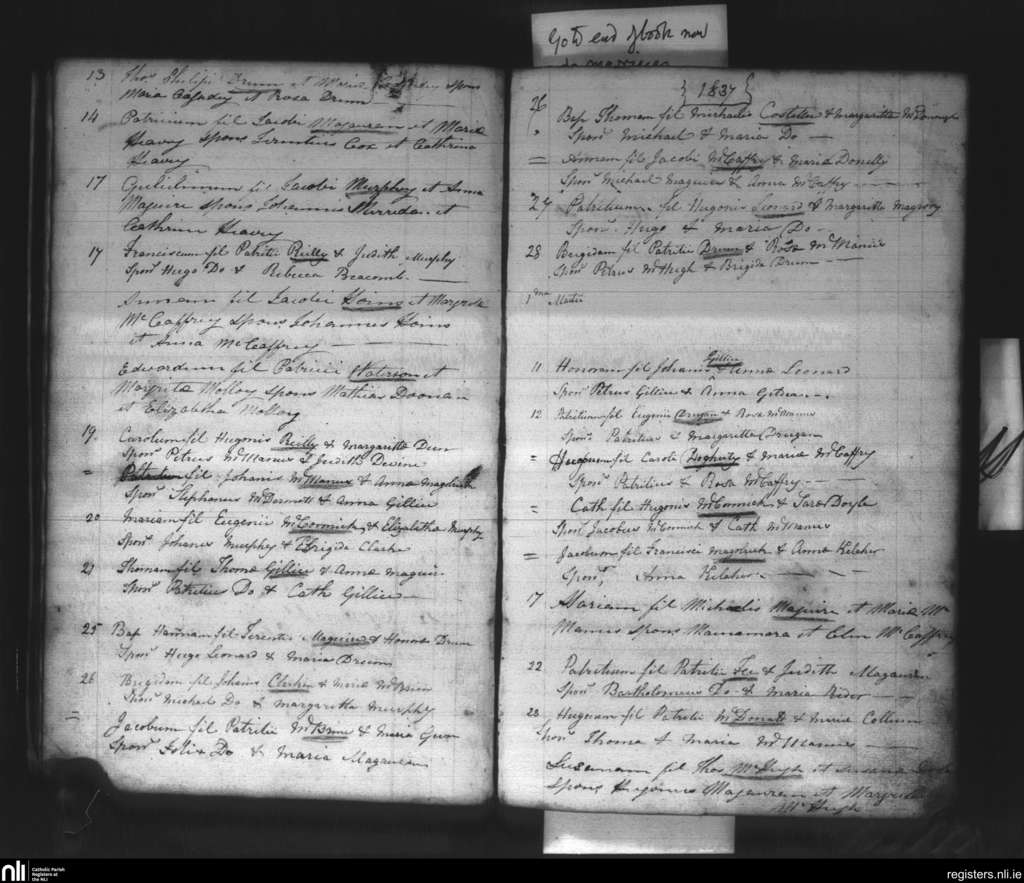 Go to end of book now
13 Thos Philipi Drum et Maria spons
Maria Casadey et Rosa Drum
14 Patricium fil Jacobi Magauran et Maria
Heavy spons Terentius Cox et Cathrina
Heavy
17 Gulielmum fil Jacobi Murphey et Anna
Maguire spons Johannis Sherridan et
Cathrin Heavey
17 Franciscum fil Patritii Reilly & Judith Murphy
Spons Hugo Do & Rebecca Beacomb
Annam fil Jacobi Hoins et Margreta
McCaffrey spons Johannes Hoins
et Anna McCaffrey
Edwardum fil Patricii Waterson et
Margrita Molloy spons Mathias Doonan
et Elizabetha Molloy
19 Carolum fil Hugonis Reilly & Margaritta
Spons Petrus McManus & Judith Devine
= fil Johanis McManus & Anna
Spons Stephanus McDermott & Anna Gillin
20 Mariam fil Eugenii McCormick & Elizabetha Murphy
Spons Johanes Murphey & Brigida Clarke
21 Thomam fil Thomæ Gillice & Annæ Maguire
Spons Patritius Do & Cath Gillice
25 Bap Hannam fil Terentii Maguire & Honora Drum
Spons Hugo Leonard & Maria Drum
26 Brigidam fil Johanis & Maria
Spons Michael Do & Margaritta Murphy
= Jacobum fil Patritii & Maria
Spons Do & Maria Magauran
{ 1837 }
26 Bap Thomam fil Michaelis Costello & Margaritta
" Spons Michael & Maria Do
= Annam fil Jacobi McCaffry & Maria Donelly
Spons Michael Maguire & Anna McCaffry
27 Patritium fil Hugonis Leonard & Margaritta
Spons Hugo & Maria Do
28 Brigidam fil Patritii Drum & Rosæ McManus
Spons Petrus McHugh & Brigida Drum
1ma Martii
Gillice
11 Honoram fil Johanis & Annæ Leonard
Spons Petrus Gillice & Anna
12 Patritium fil Eugenii Drugan & Rosa McManus
Spons Patritius & Margaritta Drugan
= fil Caroli Dogherty & Maria McCaffry
Spons Patritius & Rosa McCaffry
= Cath fil Hugonis McCormick & Sara Doyle
Spons Jacobus McCormick & Cath McManus
= Jacobum fil Francisci & Annæ Kelcher
Spons, Anna Kelcher
17 Mariam fil Michaelis Maguire et Maria Mc
Manus spons Macnamara et Elin McCaffrey
22 Patritium fil Patritii Fee & Judith Magauran
Spons Bartholomeus Do & Maria Rider
23 Hugonem fil Patritii McDonall & Maria
Spons Thoma & Maria McManus
Susanam fil Thos McHugh et Susana
spons Hugonus Magauran et Margrita
McHugh
nli
Catholic Parish
Registers at
the NLI
registers.nli.ie